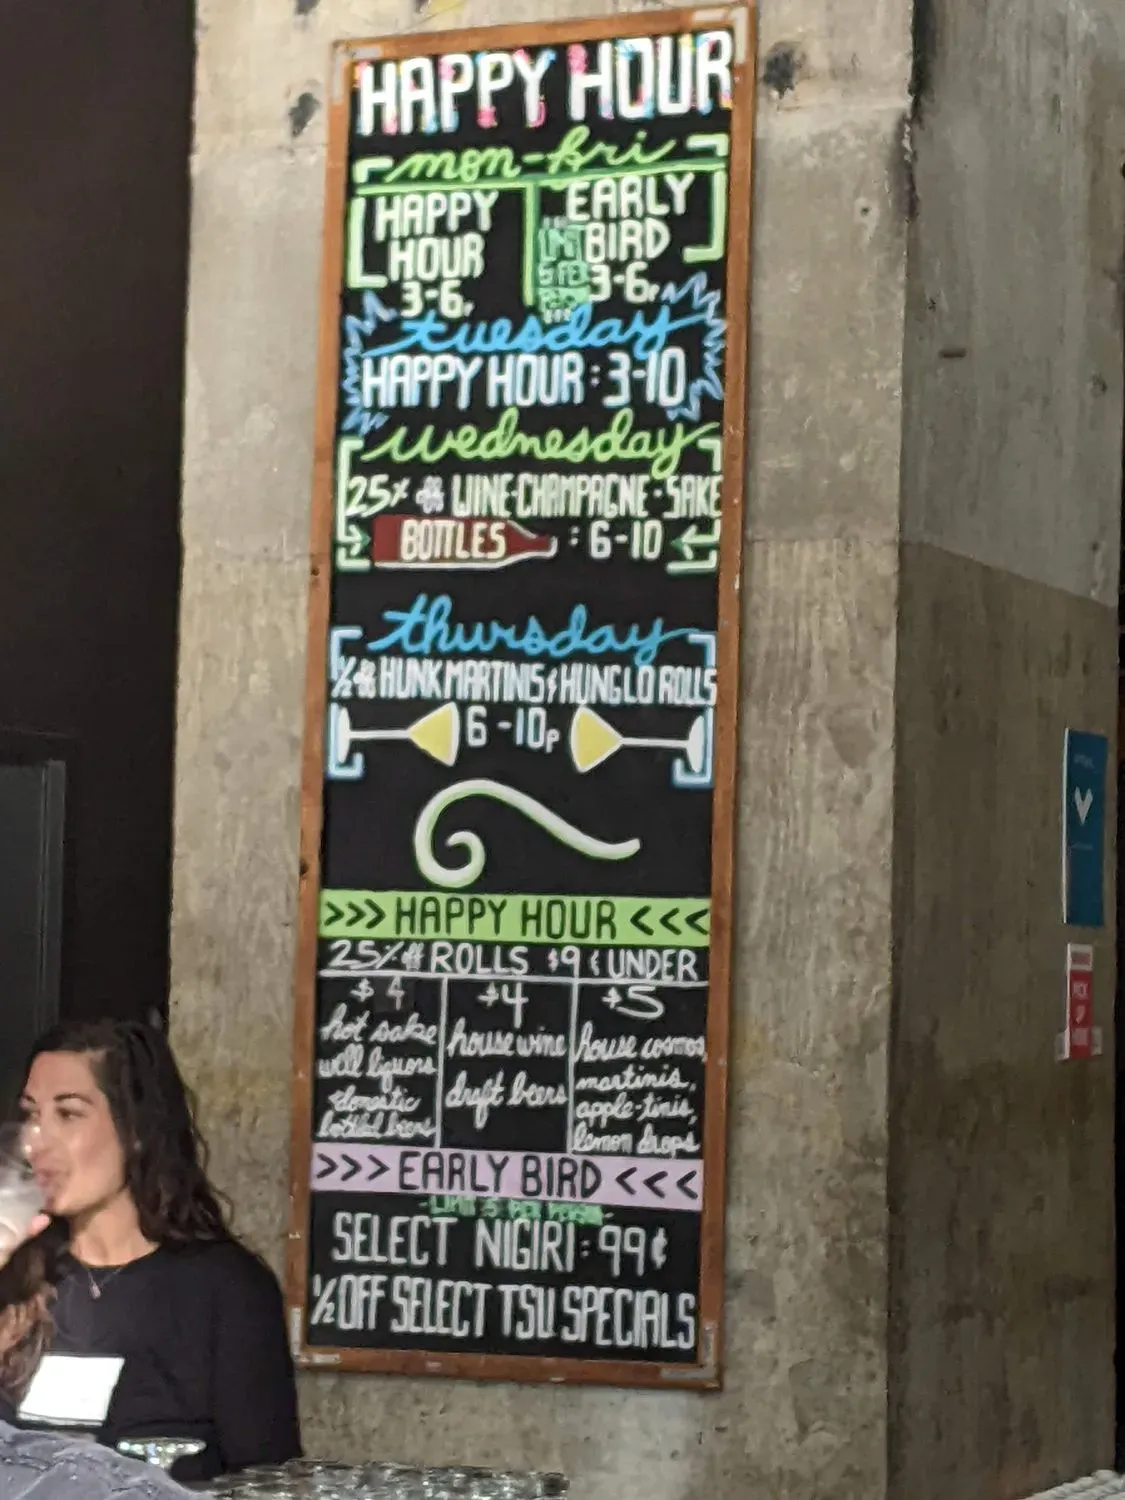 HAPPY HOUR
mon-fri
HAPPY HOUR 3-6p
LIMIT 5 PER PERSON
EARLY BIRD 3-6p
tuesday
HAPPY HOUR: 3-10
wednesday
25% off WINE·CHAMPAGNE·SAKE
BOTTLES : 6-10
thursday
1/2 off HUNK MARTINIS & HUNG LO ROLLS
6-10p
>>> HAPPY HOUR <<<
25% off ROLLS $9 & UNDER
$4
hot sake
well liquors
domestic
bottled beers
$4
house wine
draft beers
$5
house cosmos,
martinis,
apple-tinis,
lemon drops
>>> EARLY BIRD <<<
-LIMIT 5 PER PERSON-
SELECT NIGIRI: 99¢
1/2 OFF SELECT TSU SPECIALS
PICK
UP